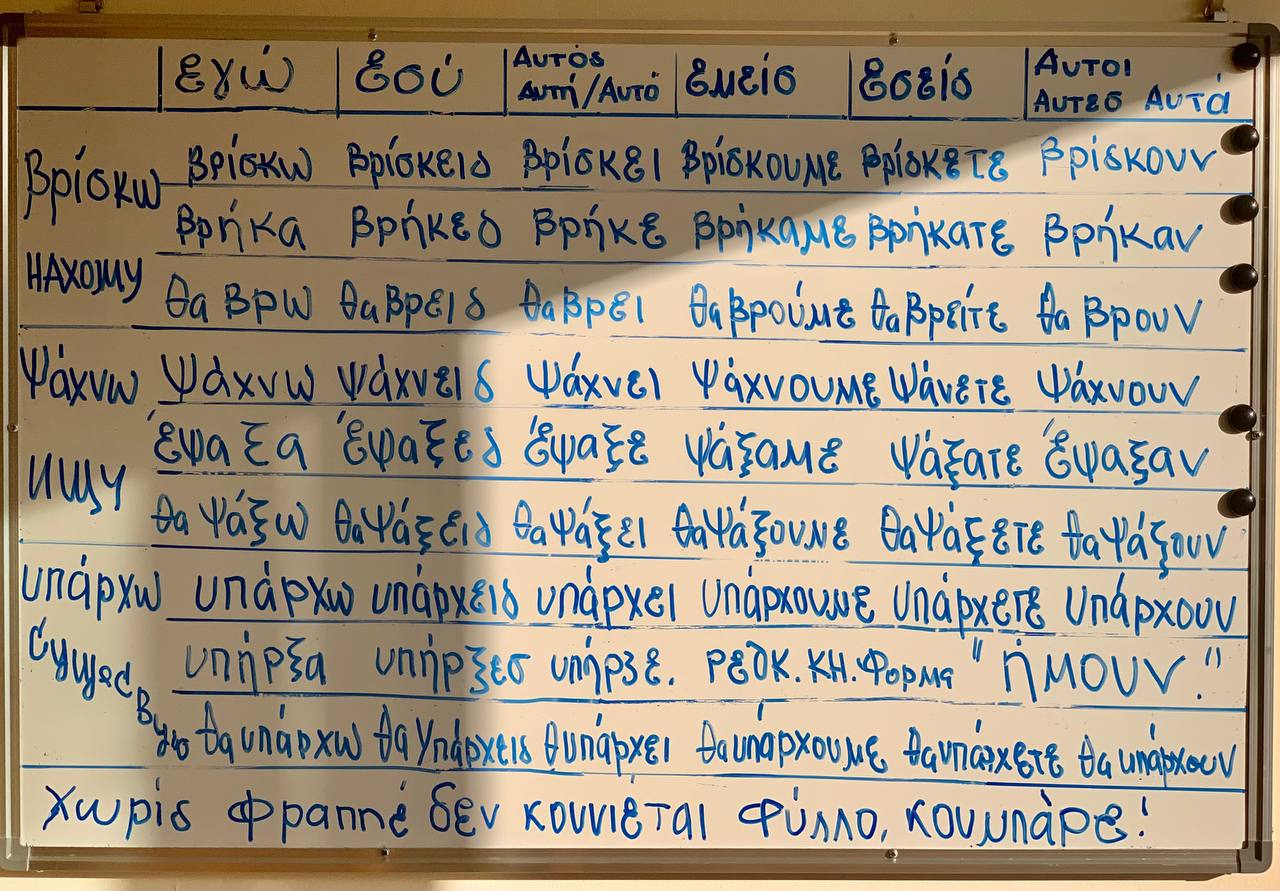 εγώ εσύ Αυτός Αυτή/Αυτό εμείς εσείς Αυτοι Αυτες Αυτά
βρίσκω βρίσκω βρίσκεις βρίσκει βρίσκουμε βρίσκετε βρίσκουν
βρήκα βρήκες βρήκε βρήκαμε βρήκατε βρήκαν
НАХОЖУ θα βρω θα βρεις θα βρει θα βρούμε θα βρείτε θα βρουν
Ψάχνω Ψάχνω ψάχνεις Ψάχνει Ψάχνουμε Ψάνετε Ψάχνουν
Έψαξα Έψαξες Έψαξε ψάξαμε ψάξατε Έψαξαν
ИЩУ θα Ψάξω θα Ψάξεις θα Ψάξει θα Ψάξουμε θα Ψάξετε θα Ψάξουν
υπάρχω υπάρχω υπάρχεις υπάρχει υπάρχουμε υπάρχετε υπάρχουν
Существую υπήρξα υπήρξες υπήρξε. РЕДК. КН. Форма "ήμουν."
θα υπάρχω θα Υπάρχεις θυπάρχει θα υπάρχουμε θα υπάρχετε θα υπάρχουν
Χωρίς Φραππέ δεν κουνιέται Φύλλο, κουμπάρε!